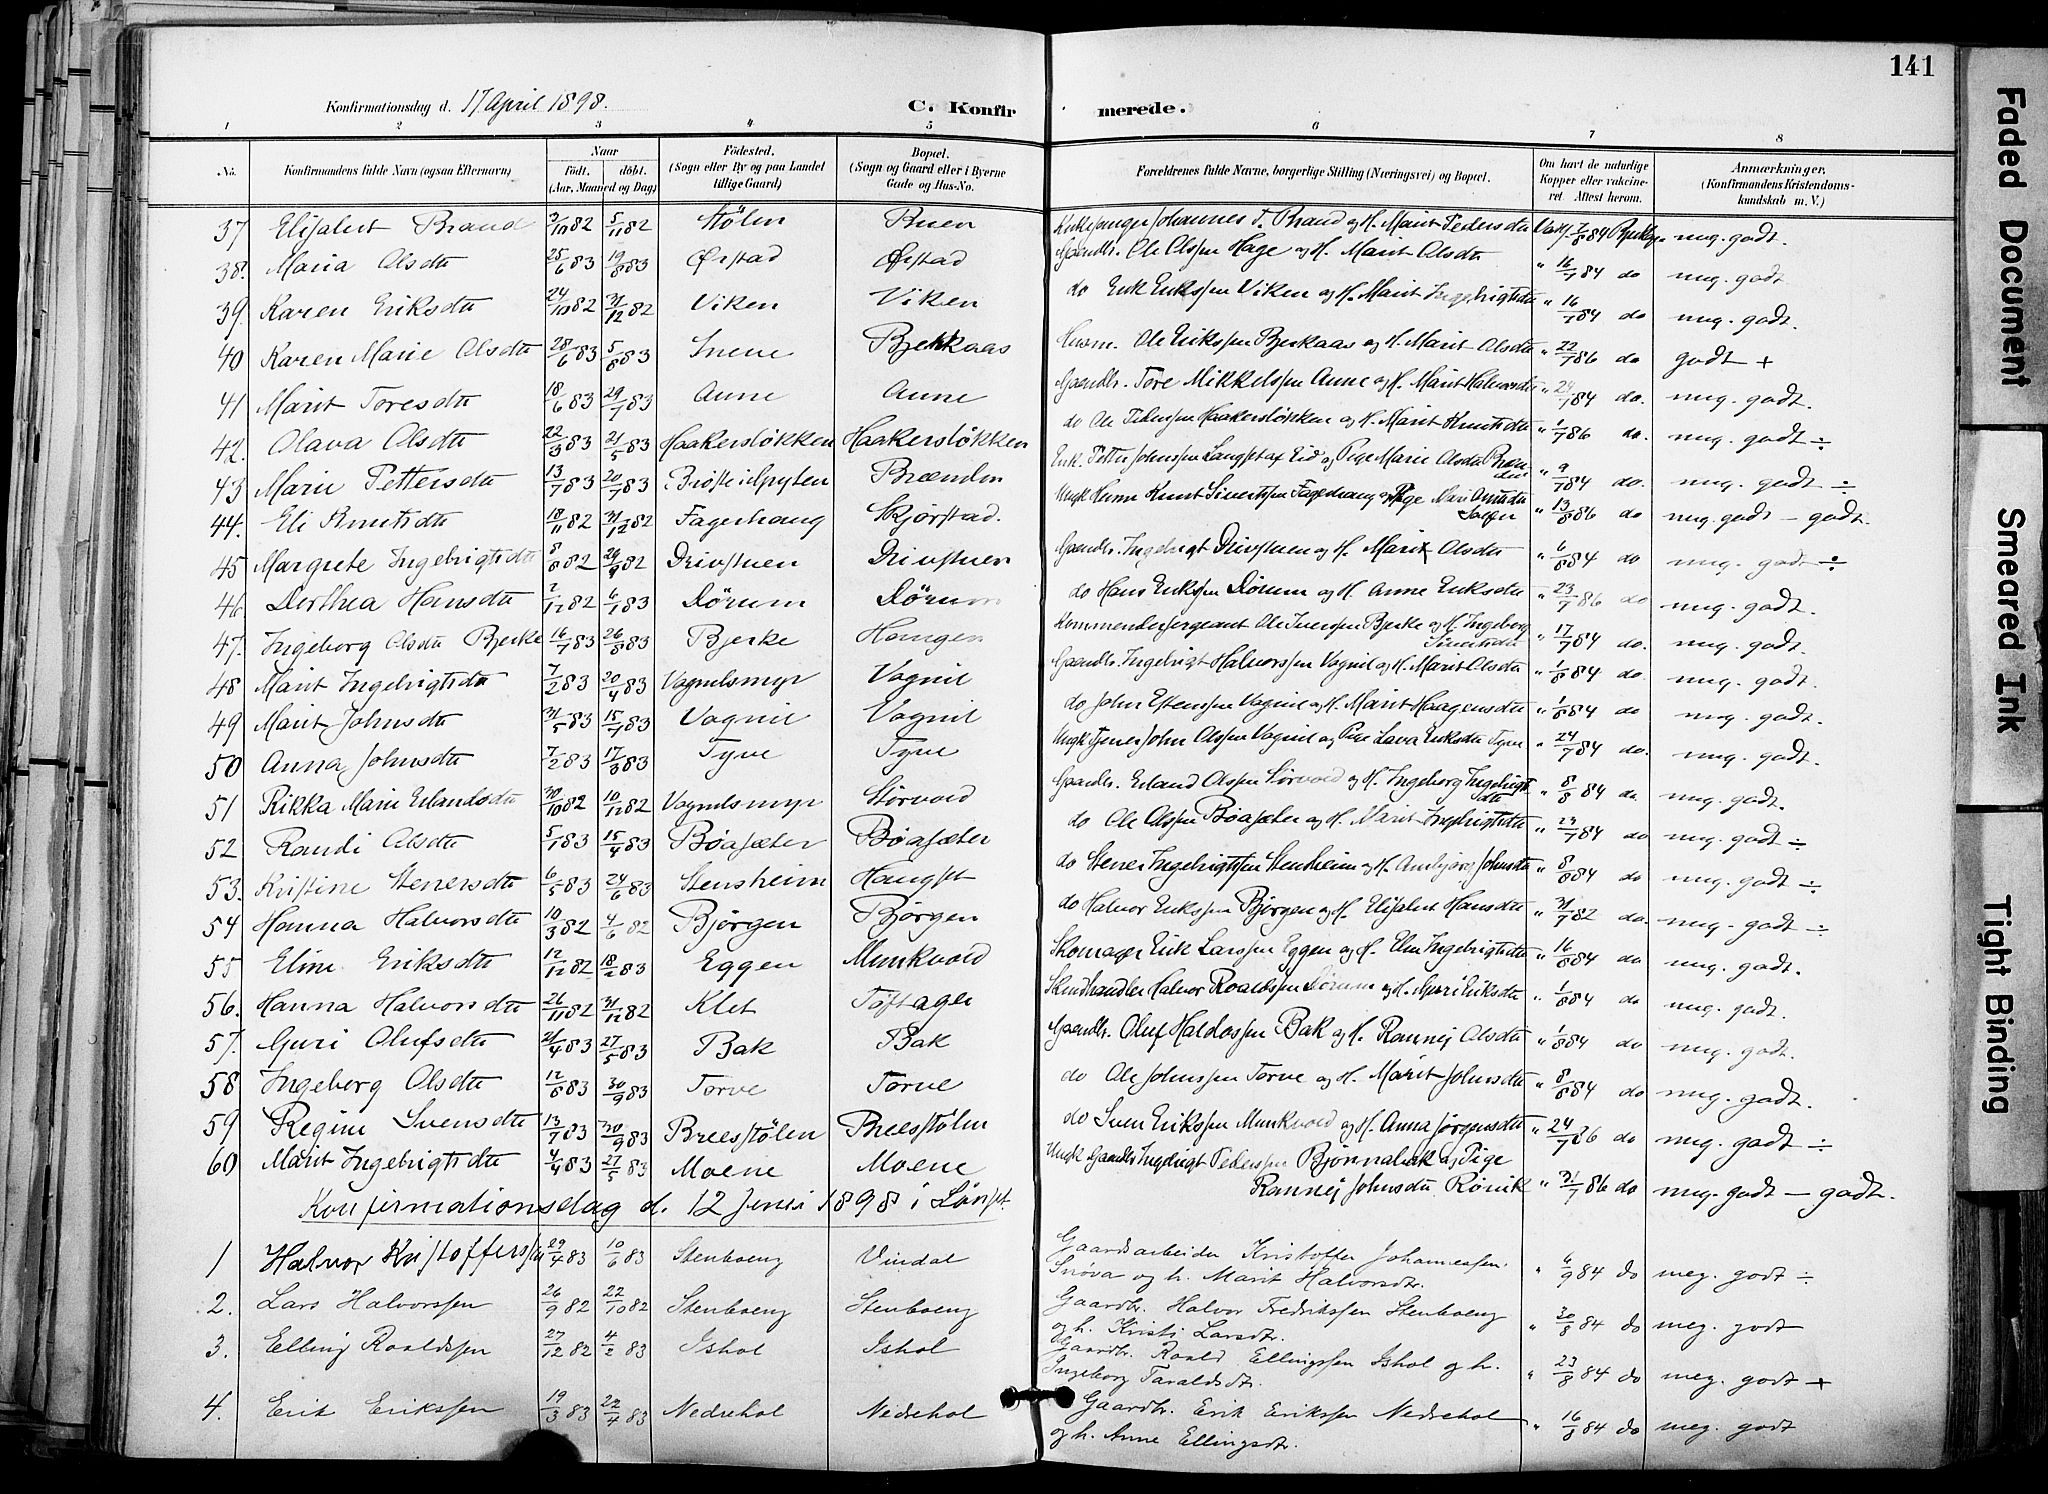 141
Konfirmationsdag d. 17 April 1898.
C. Konfirmerede.
1 2 3 4 5 6 7 8
No. Konfirmandens fulde Navn (ogsaa Efternavn) Naar Født. døbt. (Aar, Maaned og Dag) Fødested. (Sogn eller By og paa Landet tillige Gaard) Bopæl. (Sogn og Gaard eller i Byerne Gade og Hus-No. Forældrenes fulde Navne, borgerlige Stilling (Næringsvei) og Bopæl. Om havt de naturlige Kopper eller vakcineret. Attest herom. Anmærkninger. (Konfirmandens Kristendomskundskab m. V.)
37 Elisabet Brand 3/10 82 5/11 82 Stølen Buen Johannes T. Brand og H. Marit Pedersdtr Vax. 7/8 84 mg. godt.
38. Maria Olsdtr 25/6 83 19/8 83 Ørstad Ørstad Gaardbr. Ole Olssen Hage og H. Marit Olsdtr " 16/7 84 do mg. godt
39. Karen Eriksdtr 24/10 82 31/12 82 Viken Viken do Erik Erikssen Viken og H. Marit Ingebrigtsdtr " 16/7 84 do mg. godt.
40 Karen Marie Olsdtr 28/6 83 5/8 83 Bjerkaas Husm. Ole Erikssen Bjerkaas og H. Marit Olsdtr " 22/7 86 do godt +
41 Marit Toresdtr 18/6 83 29/7 83 Aune Aune Gaardbr. Tore Mikkelssen Aune og H. Marit Halvorsdtr " 24/7 84 do. mg. godt.
42. Olava Olsdtr 22/3 83 21/5 83 Haakersløkken Haakersløkken do Ole Haakersløkken og H. Marit Knutsdtr " 1/7 86 do. mg. godt ÷
43 Marie Pettersdtr 13/7 83 20/7 83 Brænden Enk. Petter Johnssen Langset af Eid og Pige Marie Olsdtr " 9/7 84 do. mg. godt ÷
44. Eli Knutsdtr 18/11 82 31/12 82 Fagerhaug Skjørstad. Ungk Knut Sivertssen Fagerhaug og Pige Mari " 13/8 86 do mg. godt – godt.
45 Margrete Ingebrigtsdtr 8/8 82 24/9 82 Drivstuen Drivstuen Gaardbr. Ingebrigt Drivstuen og H. Marit Olsdtr " 6/8 84 do mg. godt ÷
46 Dorthea Hansdtr 2/12 82 6/1 83 Dørum Dørum do Hans Erikssen Dørum og H. Anne Eriksdtr " 23/7 86 do mg. godt.
47. Ingeborg Olsdtr Bjerke 16/7 83 26/8 83 Bjerke Haugen Kommandersergeant Ole Iverssen Bjerke og H. Ingeborg Sivertsdtr " 17/7 84 do. mg. godt.
48 Marit Ingebrigtsdtr 7/2 83 20/4 83 Vognilsmyr Vognil Gaardbr. Ingebrigt Halvorssen Vognil og H. Marit Olsdtr " 1/8 84 do. mg. godt.
49 Marit Johnsdtr 31/5 83 15/7 83 Vognil Vognil do John Estenssen Vognil og H. Marit Haagensdtr " 1/8 84 do mg. godt.
50 Anna Johnsdtr 7/2 83 17/3 83 Tyve Tyve Ungk Tjener John Olssen Vognil og Pige Lava Eriksdtr Tyve " 24/7 84 do. mg. godt.
51 Rikka Marie Erlandsdtr 30/10 82 10/12 82 Vognilsmyr Størvold Gaardbr. Erland Olssen Størvold og H. Ingeborg Ingebrigtsdtr " 8/8 84 do. mg. godt.
52 Randi Olsdtr 5/1 83 15/4 83 Bøasæter Bøasæter do Ole Olssen Bøasæter og H. Marit Ingebrigtsdtr " 23/7 84 do mg. godt ÷
53. Kristine Stenersdtr 6/5 83 24/6 83 Stensheim Haugset do Stener Ingebrigtssen Stensheim og H. Johnsdtr " 8/8 84 do mg. godt ÷
54 Hanna Halvorsdtr 10/3 82 4/6 82 Bjørgen Bjørgen do Halvor Erikssen Bjørgen og H. Elisabet Hansdtr " 31/7 82 do. mg. godt ÷
55 Eline Eriksdtr 12/12 82 18/2 83 Eggen Munkvold Skomager Erik Larssen Eggen og H. Eli Ingebrigtsdtr " 16/8 84 do mg. godt.
56. Hanna Halvorsdtr 26/11 82 31/12 82 Klet Toftager Skindhandler Halvor Roaldssen Dørum og H. Mari Eriksdtr " 1/8 84 do mg. godt.
57. Guri Olufsdtr 21/4 83 27/5 83 Bak Bak Gaardbr. Oluf Haldossen Bak og H. Rannej Olsdtr " 1/8 84 do mg. godt.
58 Ingeborg Olsdtr 12/8 83 30/9 83 Torve Torve do Ole Johnssen Torve og H. Marit Johnsdtr " 8/8 84 do mg. godt.
59 Regine Svensdtr 13/7 83 30/9 83 Breesstølen Breesstølen do Sven Erikssen Munkvold og H. Anna Jørgensdtr " 24/7 86 do mg. godt ÷
60 Marit Ingebrigtsdtr 4/4 83 27/5 83 Moene Moene Ungk Gaardbr Ingebrigt Pederssen og Pige
Rannej Johnsdtr Rønik " 31/7 86 do mg. godt – godt.
Konfirmationsdag d. 12 Juni 1898 i Lønset
1 Halvor Kristofferssen 29/4 83 10/6 83 Stenboeng Vindal Gaardsarbeider Kristoffer Johannessen Snøva og h. Marit Halvorsdtr. " 6/9 84 do meg. godt ÷
2. Lars Halvorssen 26/9 82 22/10 82 Stenboeng Stenboeng Gaardbr. Halvor Fredrikssen Stenboeng og h. Kristi Larsdtr. " 30/8 84 do meg. godt
3. Elling Roaldssen 27/12 82 4/2 83 Ishol Ishol Gaardbr. Roald Ellingssen Ishol og h. Ingeborg Taraldsdtr. " 23/8 84 do meg. godt +
4. Erik Erikssen 19/3 83 22/4 83 Nedrehol Nedrehol Gaardbr. Erik Erikssen Nedrehol og h. Anne Ellingsdtr. " 16/8 84 do meg. godt
Faded Document
Smeared Ink
Tight Binding